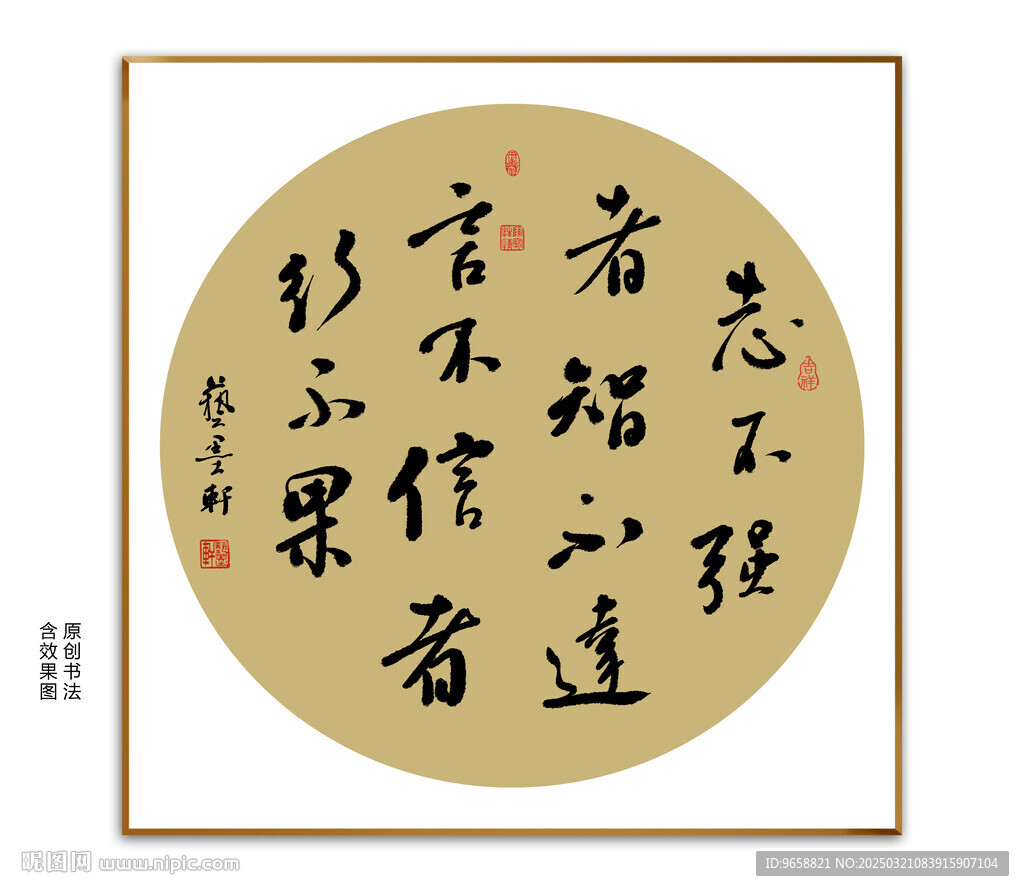 志不强
者智不達
言不信者
行不果
藝墨軒
吉祥
原创书法
含效果图
昵图网 www.nipic.com
ID:9658821 NO:20250321083915907104